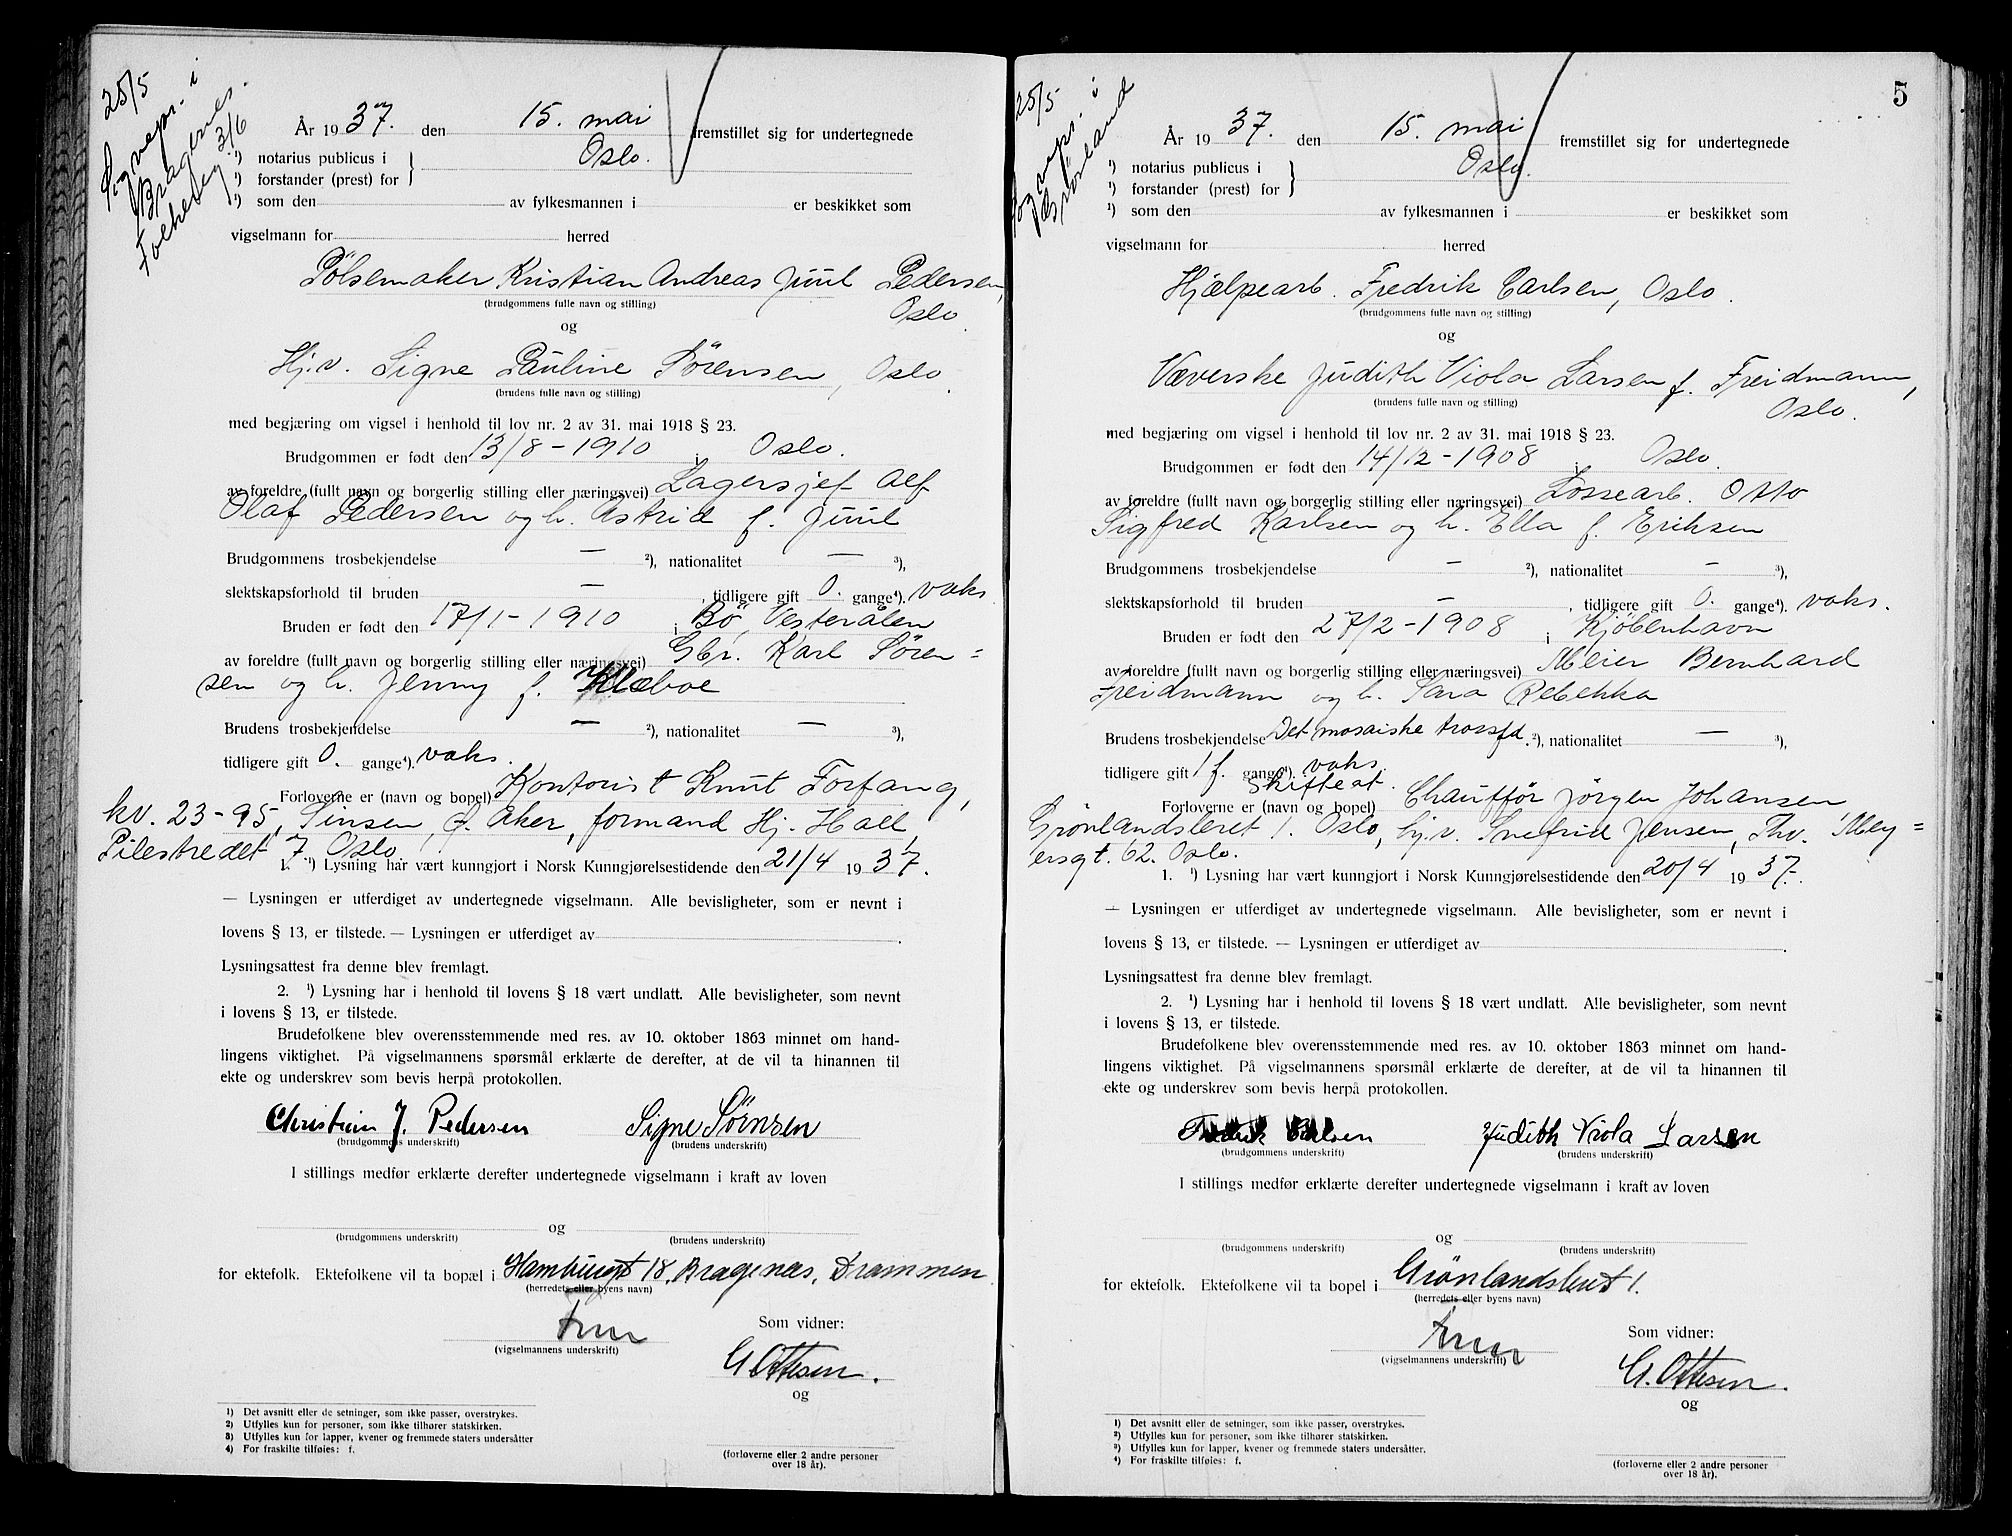 25/5
Sognepr. i
Bragernes.
Folkereg. 3/6
År 1937. den 15. mai fremstillet sig for undertegnede
¹) notarius publicus i Oslo.
¹) forstander (prest) for
¹) som den av fylkesmannen i er beskikket som
vigselmann for herred
Pølsemaker Kristian Andreas Juul Pedersen,
(brudgommens fulle navn og stilling)
Oslo.
og
Hj.v. Signe Pauline Sørensen, Oslo.
(brudens fulle navn og stilling)
med begjæring om vigsel i henhold til lov nr. 2 av 31. mai 1918 § 23.
Brudgommen er født den 13/8-1910 i Oslo.
av foreldre (fullt navn og borgerlig stilling eller næringsvei) Lagersjef Alf
Olaf Pedersen og h. Astrid f. Juul
Brudgommens trosbekjendelse — ²), nationalitet — ³),
slektskapsforhold til bruden — , tidligere gift 0. gange⁴). vaks.
Bruden er født den 17/1-1910 i Bø, Vesterålen
av foreldre (fullt navn og borgerlig stilling eller næringsvei) Gbr. Karl Søren=
sen og h. Jenny f. Klæboe
Brudens trosbekjendelse — ²), nationalitet — ³),
tidligere gift 0. gange⁴). vaks.
Forloverne er (navn og bopel) Kontorist Knut Forfang,
kv. 23-95, Sinsen, Ø. Aker, formand Hj. Hall,
Pilestredet 7, Oslo.
1. ¹) Lysning har vært kunngjort i Norsk Kunngjørelsestidende den 21/4 1937.
— Lysningen er utferdiget av undertegnede vigselmann. Alle bevisligheter, som er nevnt i
lovens § 13, er tilstede. — Lysningen er utferdiget av
Lysningsattest fra denne blev fremlagt.
2. ¹) Lysning har i henhold til lovens § 18 vært undlatt. Alle bevisligheter, som nevnt
i lovens § 13, er tilstede.
Brudefolkene blev overensstemmende med res. av 10. oktober 1863 minnet om hand-
lingens viktighet. På vigselmannens spørsmål erklærte de derefter, at de vil ta hinannen til
ekte og underskrev som bevis herpå protokollen.
Christian J. Pedersen Signe Sørnsen
(brudgommens underskrift) (brudens underskrift)
I stillings medfør erklærte derefter undertegnede vigselmann i kraft av loven
og
(brudgommens underskrift) (brudens underskrift)
for ektefolk. Ektefolkene vil ta bopæl i Hamburgt 18, Bragenæs, Drammen
(herredets eller byens navn)
Som vidner:
(vigselmannens underskrift)
G. Ottesen.
og
(forloverne eller 2 andre personer
over 18 år).
1) Det avsnitt eller de setninger, som ikke passer, overstrykes.
2) Utfylles kun for personer, som ikke tilhører statskirken.
3) Utfylles kun for lapper, kvener og fremmede staters undersåtter
4) For fraskilte tilføies: f.
5
25/5
Sognepr. i
Grønland
År 1937. den 15. mai fremstillet sig for undertegnede
¹) notarius publicus i Oslo.
¹) forstander (prest) for
¹) som den av fylkesmannen i er beskikket som
vigselmann for herred
Hjælpearb. Fredrik Carlsen, Oslo.
(brudgommens fulle navn og stilling)
og
Væverske Judith Viola Larsen f. Freidmann,
(brudens fulle navn og stilling)
Oslo.
med begjæring om vigsel i henhold til lov nr. 2 av 31. mai 1918 § 23.
Brudgommen er født den 14/12-1908 i Oslo.
av foreldre (fullt navn og borgerlig stilling eller næringsvei) Lossearb. Otto
Sigfred Karlsen og h. Ella f. Eriksen
Brudgommens trosbekjendelse — ²), nationalitet — ³),
slektskapsforhold til bruden — , tidligere gift 0. gange⁴). vaks.
Bruden er født den 27/2-1908 i Kjøbenhavn
av foreldre (fullt navn og borgerlig stilling eller næringsvei) Meier Bernhard
Freidmann og h. Sara Rebekka
Brudens trosbekjendelse Det mosaiske trossfd. ²), nationalitet — ³),
tidligere gift 1 f. gange⁴). vaks.
skifteat.
Forloverne er (navn og bopel) Chauffør Jørgen Johansen
Grønlandsleret 1. Oslo, hj.v. Snefrid Jensen, Thv. Mey=
ersgt. 62. Oslo.
1. ¹) Lysning har vært kunngjort i Norsk Kunngjørelsestidende den 20/4 1937.
— Lysningen er utferdiget av undertegnede vigselmann. Alle bevisligheter, som er nevnt i
lovens § 13, er tilstede. — Lysningen er utferdiget av
Lysningsattest fra denne blev fremlagt.
2. ¹) Lysning har i henhold til lovens § 18 vært undlatt. Alle bevisligheter, som nevnt
i lovens § 13, er tilstede.
Brudefolkene blev overensstemmende med res. av 10. oktober 1863 minnet om hand-
lingens viktighet. På vigselmannens spørsmål erklærte de derefter, at de vil ta hinannen til
ekte og underskrev som bevis herpå protokollen.
Fredrik Carlsen Judith Viola Larsen
(brudgommens underskrift) (brudens underskrift)
I stillings medfør erklærte derefter undertegnede vigselmann i kraft av loven
og
(brudgommens underskrift) (brudens underskrift)
for ektefolk. Ektefolkene vil ta bopel i Grønlandsleret 1.
(herredets eller byens navn)
Som vidner:
(vigselmannens underskrift)
G. Ottesen.
og
(forloverne eller 2 andre personer
over 18 år).
¹) Det avsnitt eller de setninger, som ikke passer, overstrykes.
²) Utfylles kun for personer, som ikke tilhører statskirken.
³) Utfylles kun for lapper, kvener og fremmede staters undersåtter.
⁴) For fraskilte tilføies: f.